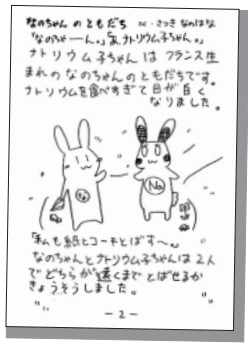 なのちゃんのともだち
「なのちゃーん。」「あ、ナトリウム子ちゃん。」
ナトリウム子ちゃんはフランス生
まれのなのちゃんのともだちです。
ナトリウムを食べすぎて目が白く
なりました。
Na
「私も紙とコーキとばす〜。」
なのちゃんとナトリウム子ちゃんは2人
でどちらが遠くまでとばせるか
きょうそうしました。
－2－